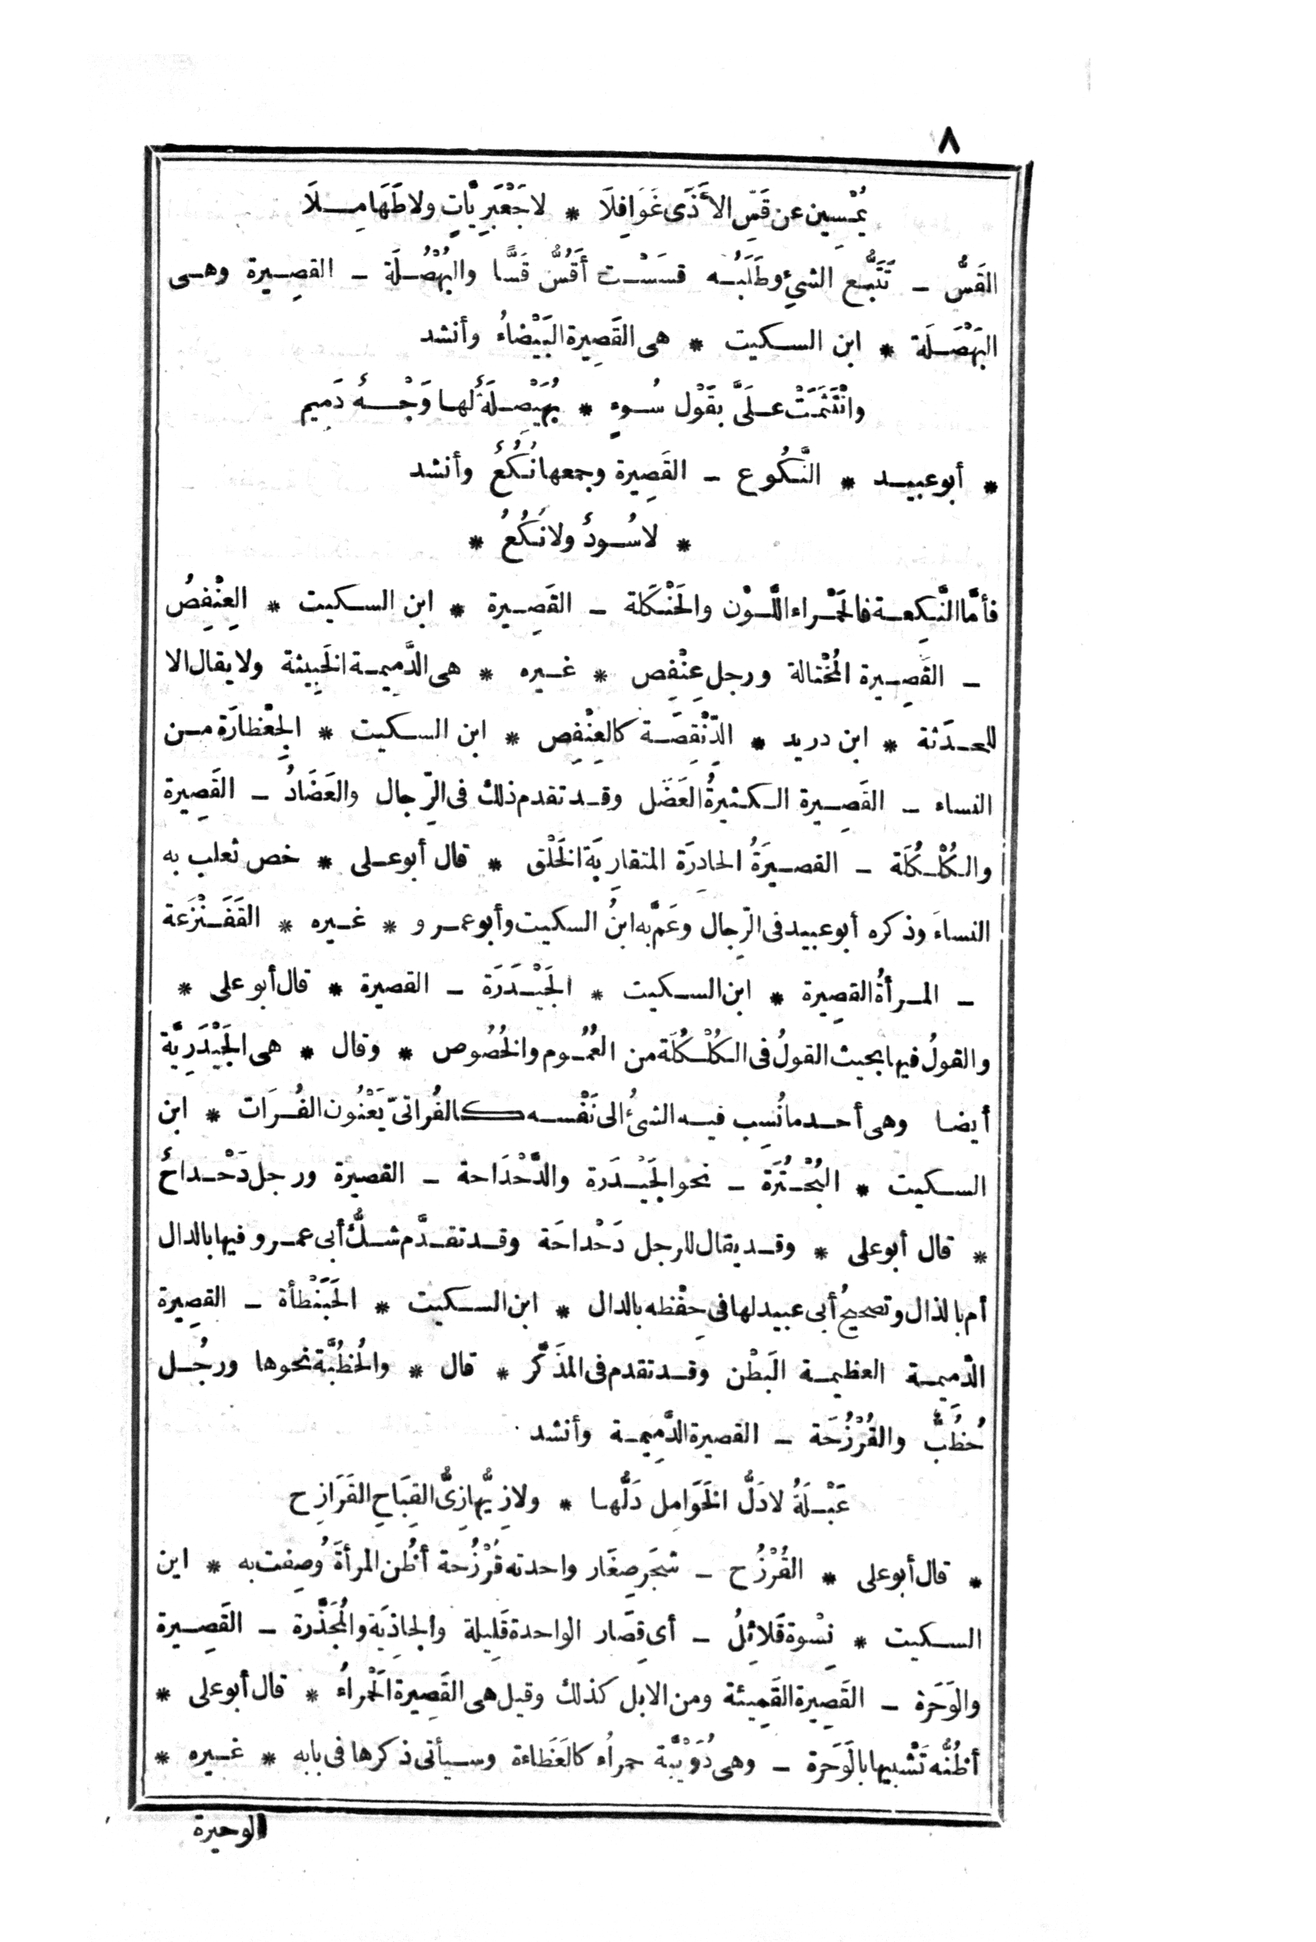 ٨
يُمْسِين عن قَسِّ الأَذَى غَوَافِلَا * لا جَعْبَرِيَّاتٍ ولا طَهَامِلَا
القَسُّ - تَتَبُّع الشيْءِ وطَلَبُه قسَسْت أَقُسُّ قَسًّا والبُهْصُلَة - القصِيرة وهى
البَهْصَلَة * ابن السكيت * هى القَصِيرة البَيْضاءُ وأنشد
وانْتَثَمَتْ علَىَّ بقَوْل سُوءٍ * بُهَيْصِلَةٌ لها وَجْهٌ دَمِيم
* أبو عبيد * النَّكُوع - القَصِيرة وجمعها نُكُعٌ وأنشد
* لا سُودٌ ولا نُكُعُ *
فأمَّا النَّكِعة فالحَمْراء اللَّوْن والحَنْكَلة - القَصِيرة * ابن السكيت * العِنْفِصُ
- القَصِيرة المُخْتالة ورجل عِنْفِص * غيره * هى الدَّمِيمة الخَبِيثة ولا يقال الا
للحدَثة * ابن دريد * الدِّنْقِصَة كالعِنْفِص * ابن السكيت * الجِعْظارَة من
النساء - القَصِيرة الكثيرةُ العَضَل وقد تقدم ذلك فى الرِّجال والعَضَادُ - القَصِيرة
والكُلْكُلَة - القصيرَةُ الحادِرَة المتقارِبَة الخَلْق * قال أبو على * خص ثعلب به
النساءَ وذكره أبو عبيد فى الرِّجال وعَمَّ به ابنُ السكيت وأبو عمرو * غيره * القَفَنْزَعة
- المرأةُ القصِيرة * ابن السكيت * الجَيْدَرَة - القصيرة * قال أبو على *
والقولُ فيها بحيث القولُ فى الكُلْكُلَة من العُمُوم والخُصُوص * وقال * هى الجَيْدَرِيَّة
أيضا وهى أحد ما نُسِب فيه الشئُ الى نَفْسه كالفُراتىّ يَعْنُون الفُرَات * ابن
السكيت * البُحْتُرَة - نحو الجَيْدَرة والدَّحْدَاحة - القصيرة ورجل دَحْداحٌ
* قال أبو على * وقد يقال للرجل دَحْداحَة وقد تقدَّم شكُّ أبى عمرو فيها بالدال
أم بالذال وتصحيحُ أبى عبيد لها فى حِفْظه بالدال * ابن السكيت * الحَبَنْطأة - القصِيرة
الدَّمِيمة العظيمة البَطْن وقد تقدم فى المذَكَّر * قال * والحُظُبَّة نحوها ورجُل
حُظُبٌّ والقُرْزُحَة - القصيرة الدَّمِيمة وأنشد
عَبْلَةُ لا دَلُّ الخَوَامِل دَلُّها * ولا زِيُّها زِىُّ القِبَاحِ القَرَازِح
* قال أبو على * القُرْزُح - شجَر صِغَار واحدته قُرْزُحة أظُن المرأةَ وُصِفت به * ابن
السكيت * نِسْوة قَلائِلُ - أى قِصَار الواحدة قَلِيلة والجاذِيَة والمُجَذَّرة - القَصِيرة
والوَحَرة - القَصِيرة القَمِيئة ومن الابل كذلك وقيل هى القَصِيرة الحَمْراءُ * قال أبو على *
أظُنُّه تَشْبيها بالَوحَرة - وهى دُوَيْبَّة حمراُء كالعَظَاءة وسيأتى ذكرها فى بابه * غيره *
الوحيرة